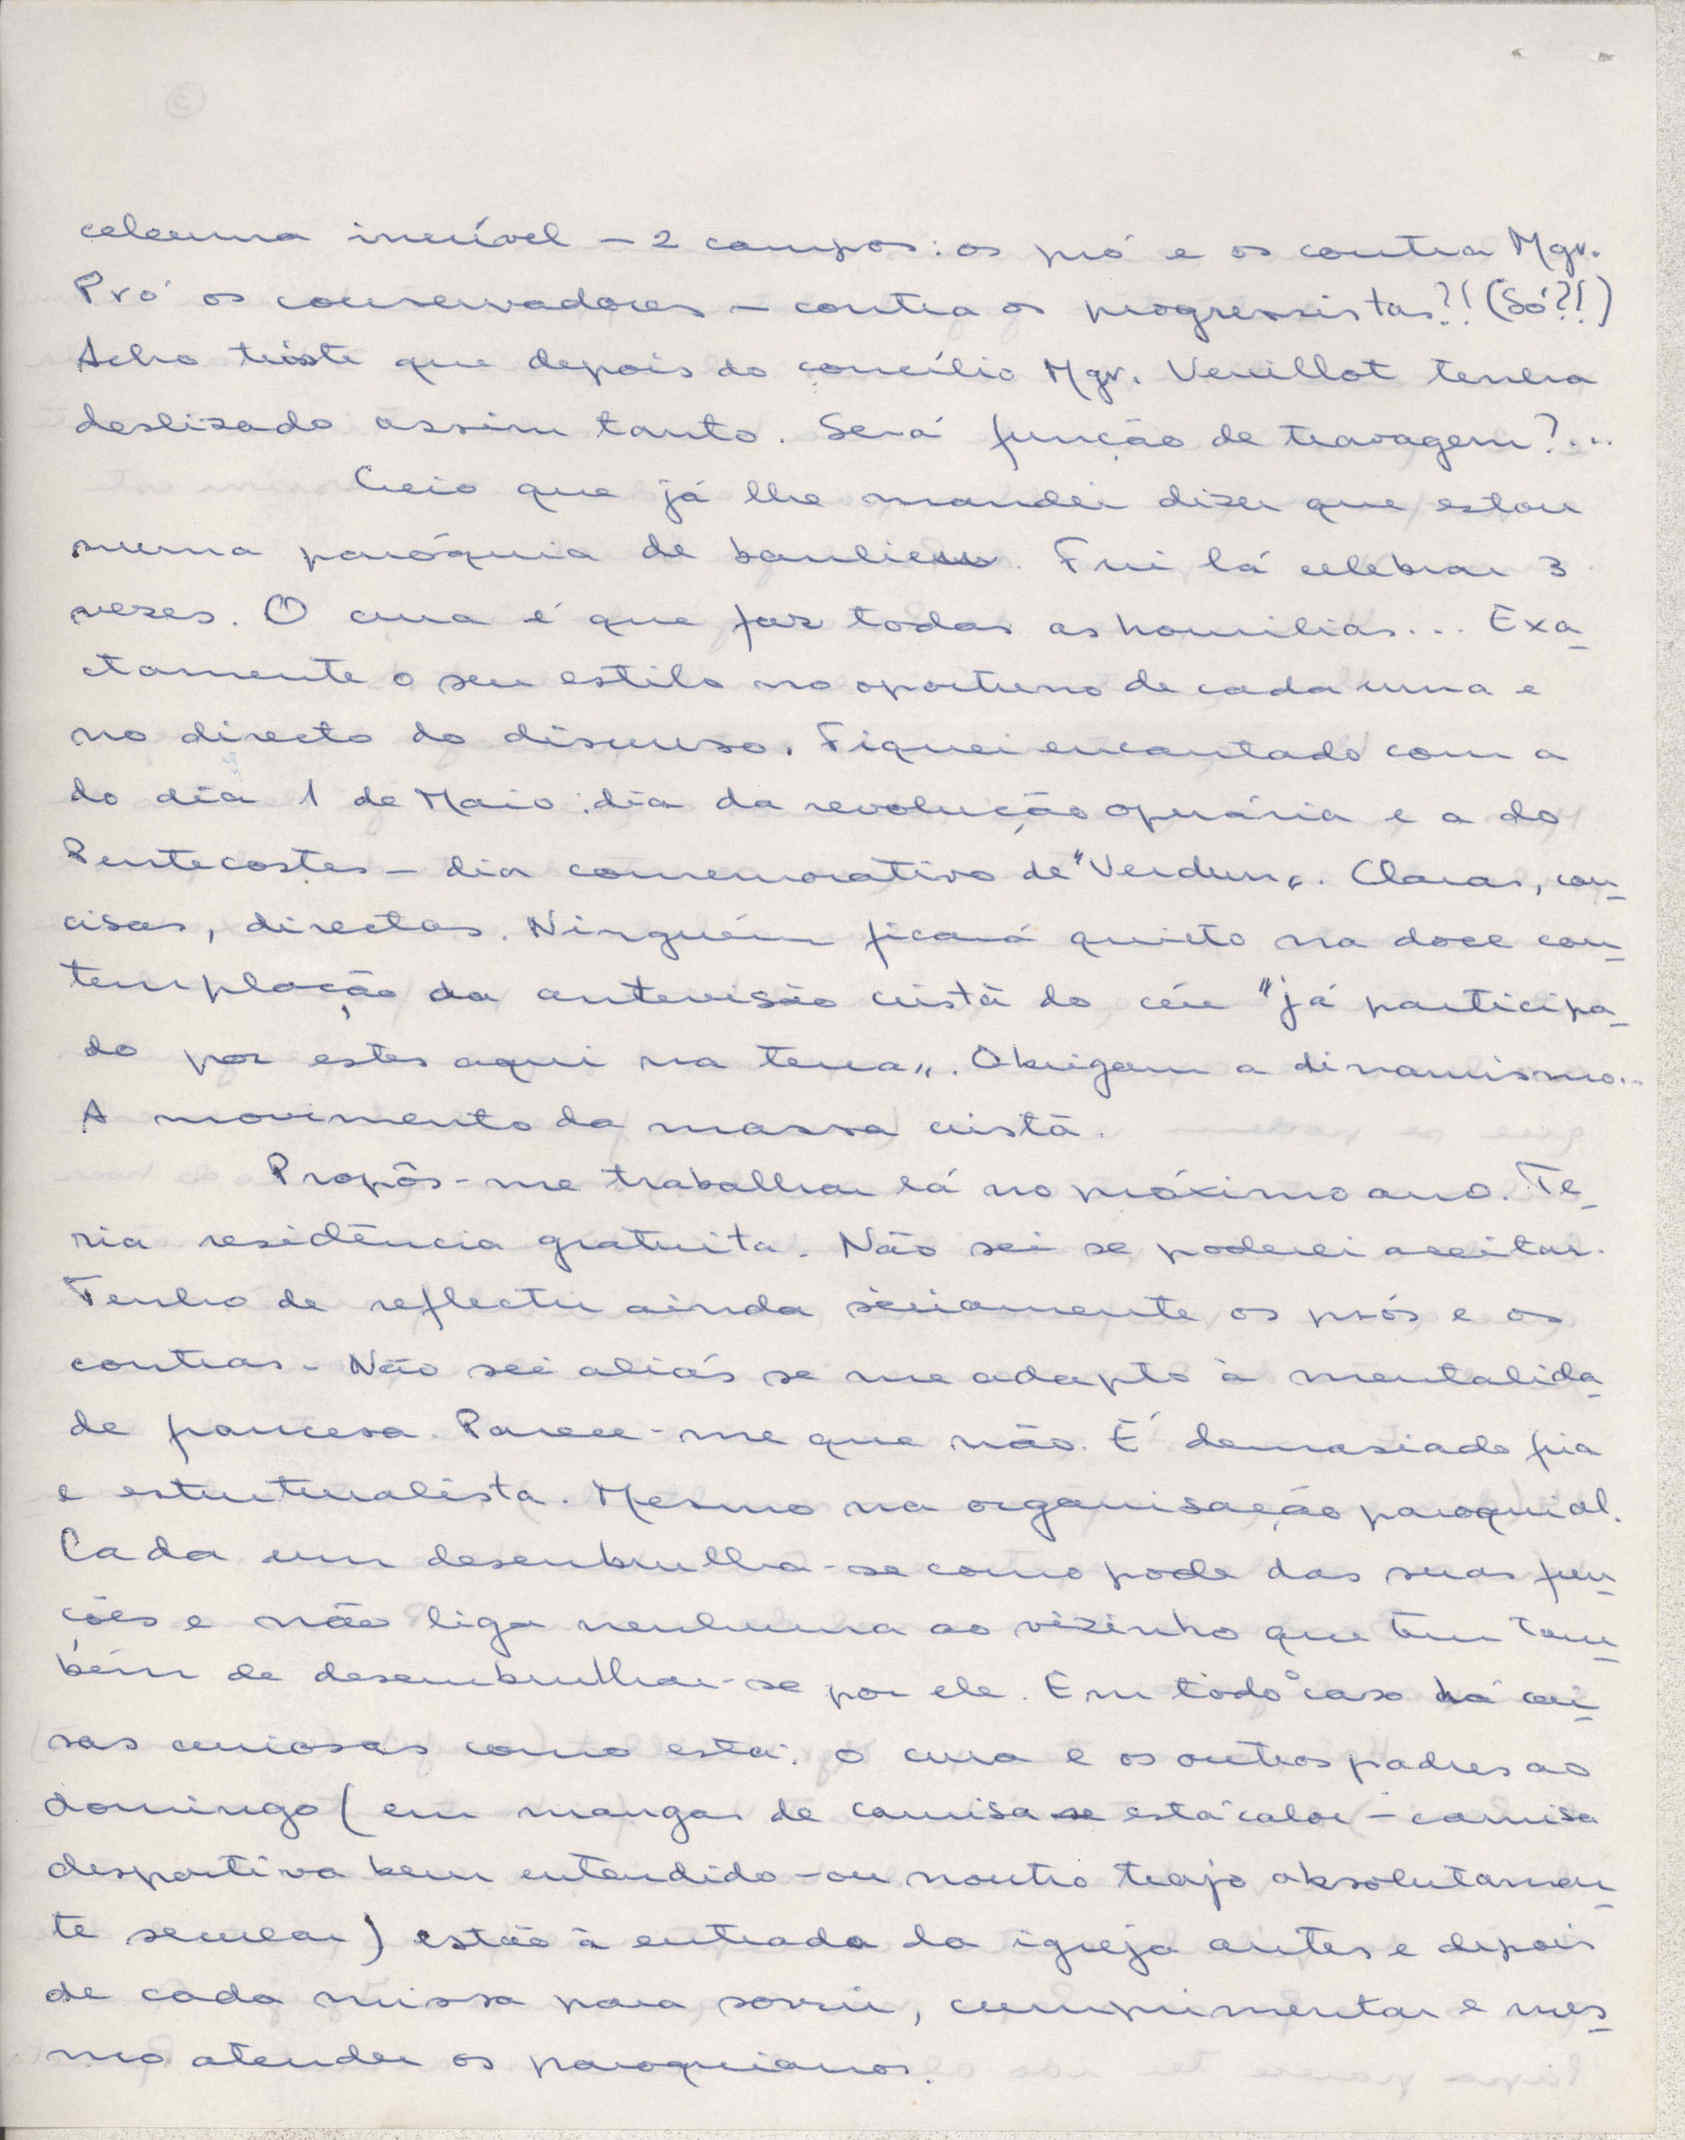 celeuma incrível - 2 campos: os pró e os contra Mgr.
Pró os conservadores - contra os progressistas?! (Só?!)
Acho triste que depois do concílio Mgr. Veuillot tenha
deslisado assim tanto. Será função de travagem?...
Creio que já lhe mandei dizer que estou
numa paróquia de banlieu. Fui lá celebrar 3
vezes. O cura é que faz todas as homilias... Exa-
ctamente o seu estilo no oportuno de cada uma e
no directo do discurso. Fiquei encantado com a
do dia 1 de Maio: dia da revolução operária e a do
Pentecostes - dia comemorativo de "Verdun". Claras, con-
cisas, directas. Ninguém ficará quieto na doce con-
templação da antevisão cristã do céu "já participa-
do por estes aqui na terra". Obrigam a dinamismo...
A movimento da massa cristã.
Propôs-me trabalhar lá no próximo ano. Te-
ria residência gratuita. Não sei se poderei aceitar.
Tenho de reflectir ainda sèriamente os prós e os
contras. Não sei aliás se me adapto à mentalida-
de francesa. Parece-me que não. É demasiado fria
e estruturalista. Mesmo na organisação paroquial.
Cada um desenbrulha-se como pode das suas fun-
ções e não liga nenhuma ao vizinho que tem tam-
bém de desembrulhar-se por ele. Em todo o caso há coi-
sas curiosas como esta: o cura e os outros padres ao
domingo (em mangas de camisa se está calor - camisa
desportiva bem entendido - ou noutro trajo absolutamen-
te secular) estão à entrada da igreja antes e depois
de cada missa para sorrir, cumprimentar e mes-
mo atender os paroquianos.